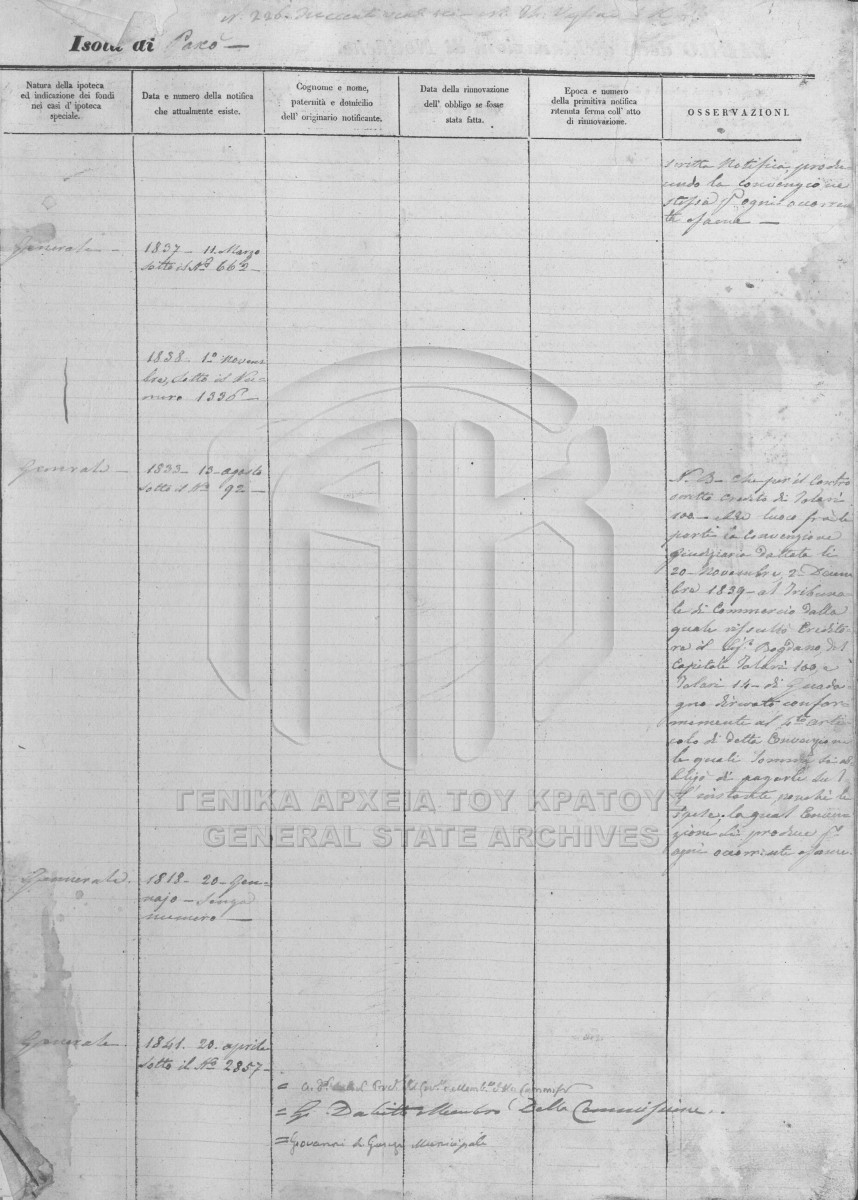 Isola di Paxò —
Natura della ipoteca
ed indicazione dei fondi
nei casi d' ipoteca
speciale.
Data e numero della notifica
che attualmente esiste.
Cognome e nome,
paternità e domicilio
dell' originario notificante.
Data della rinnovazione
dell' obbligo se fosse
stata fatta.
Epoca e numero
della primitiva notifica
ritenuta ferma coll' atto
di rinnovazione.
OSSERVAZIONI.
scritta Notifica, produ
cendo la convenzione
stessa ogni occorren
te esame —
Generale —
1837 — 11 Marzo
sotto il Nº 662 —
1838. 1º Novem
bre, sotto il Nu-
mero 1336 —
Generale —
1833 — 13 agosto
sotto il Nº 92 —
N. B — che per il contro
scritto credito di Talari
100 — luoco fra le
parti la Convenzione
giudiziaria dattata li
20 — Novembre 2 Decem
bre 1839 — al Tribuna
le di Commercio dalla
quale risultò Credito
re il Bogdano, del
Capitale Talari 100, e
Talari 14 — di Guada
gno derivato confor
memente al 4to arti
colo di detta Convenzione
le quali Somme si ob
bligò di pagarle
instante, nonchè le
spese, la qual Conven
zione si produce
ogni occorrente esame.
ΓΕΝΙΚΑ ΑΡΧΕΙΑ ΤΟΥ ΚΡΑΤΟΥΣ
GENERAL STATE ARCHIVES
Generale.
1818 — 20 — Gen-
najo — Senza
numero —
Generale —
1841. 20. aprile
sotto il Nº 2857 —
= Membro Della Commissione..
= Giovanni Municipale